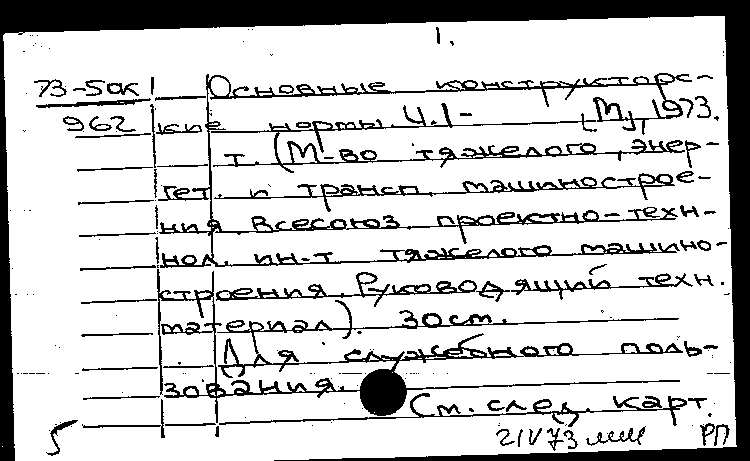 1.
73-5ок Основные конструкторс-
962 кие нормы. Ч. 1- [М], 1973.
т. (М-во тяжелого, энер-
гет. и трансп. машинострое-
ния. Всесоюз. проектно-техн-
нол. ин-т тяжелого машино-
строения. Руководящий техн.
материал). 30 см.
Для служебного поль-
зования.
См. след. карт.
5 21V73 РП